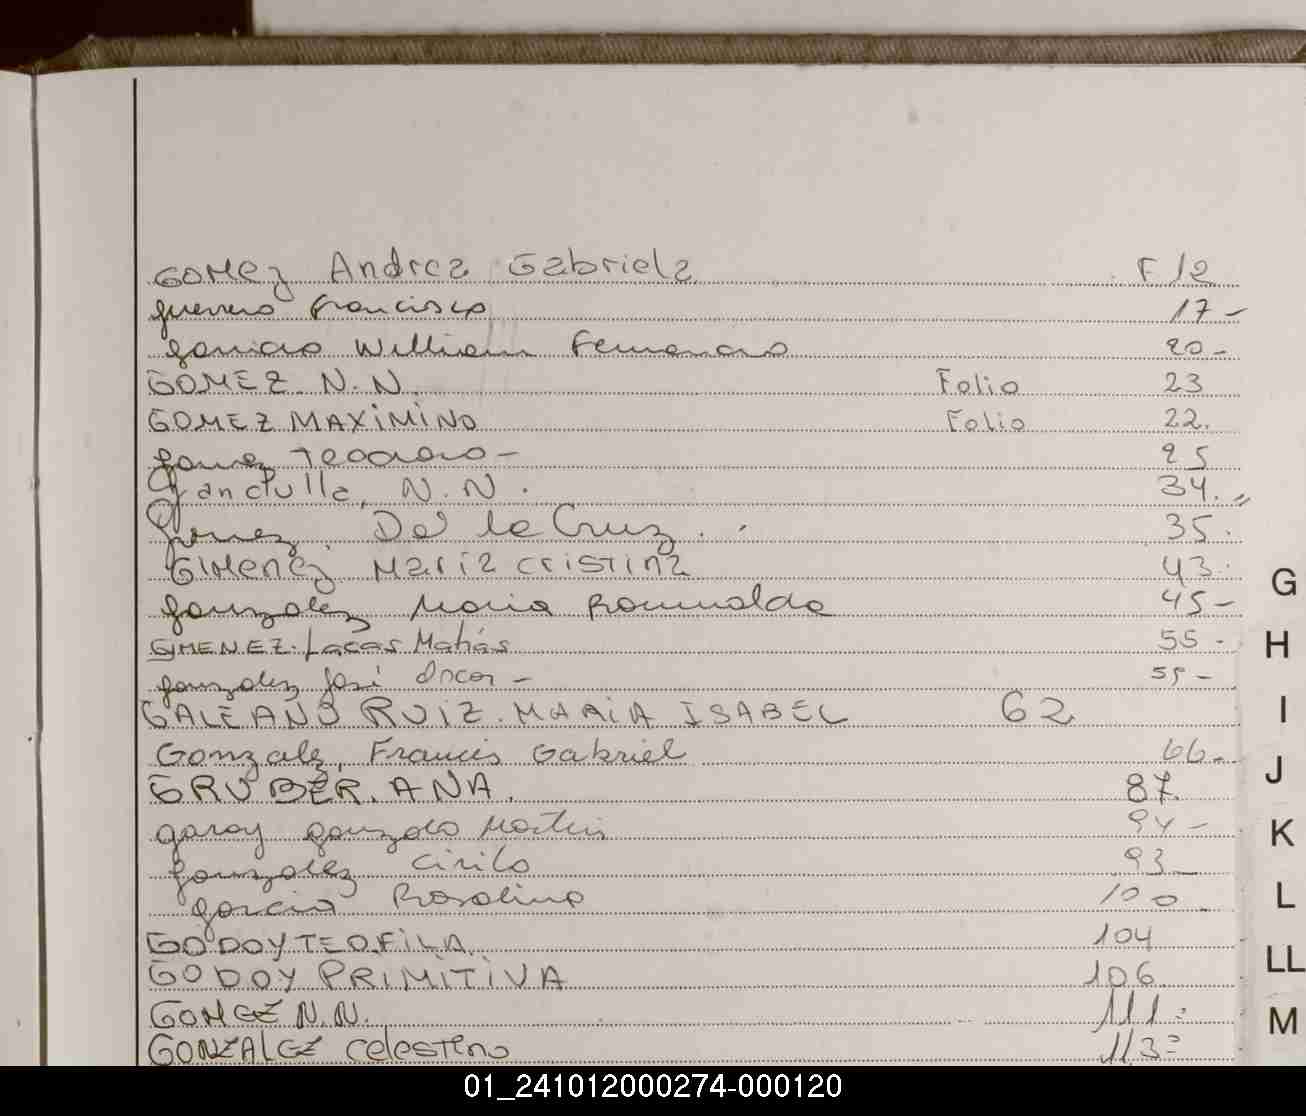 GOMEz Andrea Gabriela F 12
guerrero Francisco 17 -
William Fernando 20 -
GOMEZ N.N. Folio 23
GOMEZ MAXIMINO Folio 22.
Gomez Teodoro - 25
Gandulla, N.N. 34.
Gomez De la Cruz. 35.
GIMENEz Maria cristina 43.
gonzalez Maria Romualda 45 -
GIMENEZ. Lucas Matías 55 -
gonzalez José Oscar - 55 -
GALEANO RUIZ. MARIA ISABEL 62
Gonzalz, Francis Gabriel 66.
GRUBER. ANA. 87.
garay gonzalo Martin 94 -
gonzalez Cirilo 93
garcia Rosalino 100
GODOY TEOFILA 104
GODOY PRIMITIVA 106
GOMEZ N.N. 111
GONZALEZ Celestino 113
G
H
I
J
K
L
LL
M
01_241012000274-000120